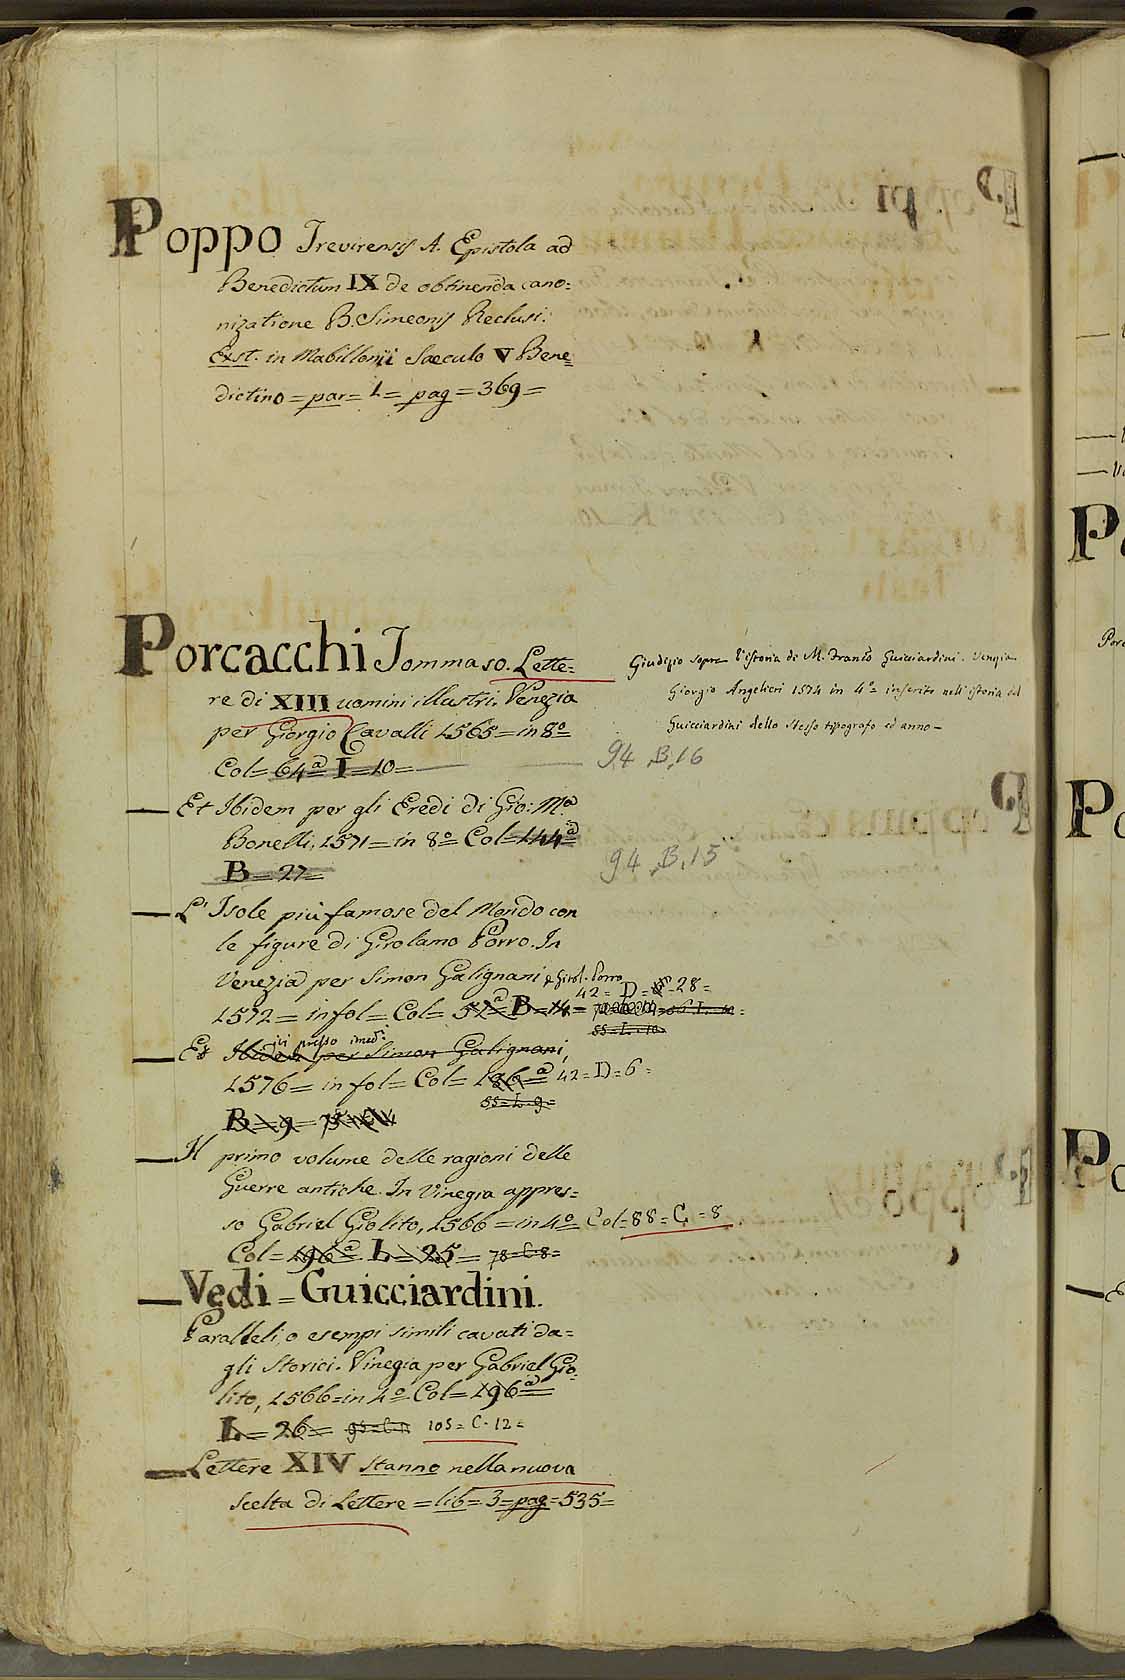 Poppo Trevirensis A. Epistola ad
Benedictum IX de obtinenda cano=
nizatione B. Simeonis Reclusi.
Exst. in Mabillonii Saeculo V Bene=
dictino = par = 1 = pag = 369 =
Porcacchi Tommaso. Lette=
re di XIII uomini illustri. Venezia
per Giorgio Cavalli 1565 = in 8º =
Col = 64ª I = 10 =
94 B.16
Giudizio sopra l'istoria di M. Franco Guicciardini. Venezia
Giorgio Angelieri 1574 in 4º = inserito nell'istoria del
Guicciardini dello stesso tipografo ed anno -
— Et Ibidem per gli Eredi di Gio: Mª
Bonelli, 1571 = in 8º Col = 144ª
B = 27 =
94 B.15
— L'Isole più famose del Mondo con
le figure di Girolamo Porro. In
Venezia per Simon Galignani e Girol. Porro
1572 = in fol = Col = 52ª = B = 14 =
42 = D = 28 =
— Et Ibidem per Simon Galignani,
1576 = in fol = Col = 186ª 42 = D = 6 =
85 = L = 9 =
B = 9 =
— Il primo volume delle ragioni delle
Guerre antiche. In Vinegia appres=
so Gabriel Giolito, 1566 = in 4º Col = 88 = C = 8
Col = 196ª L = 25 = 78 = C 8 =
— Vedi = Guicciardini.
Paralleli, o esempi simili cavati da=
gli Storici. Vinegia per Gabriel Gio=
lito, 1566 = in 4º Col = 196ª =
L = 26 = 105 = C. 12 =
— Lettere XIV stanno nella nuova
scelta di Lettere = lib = 3 = pag = 535 =